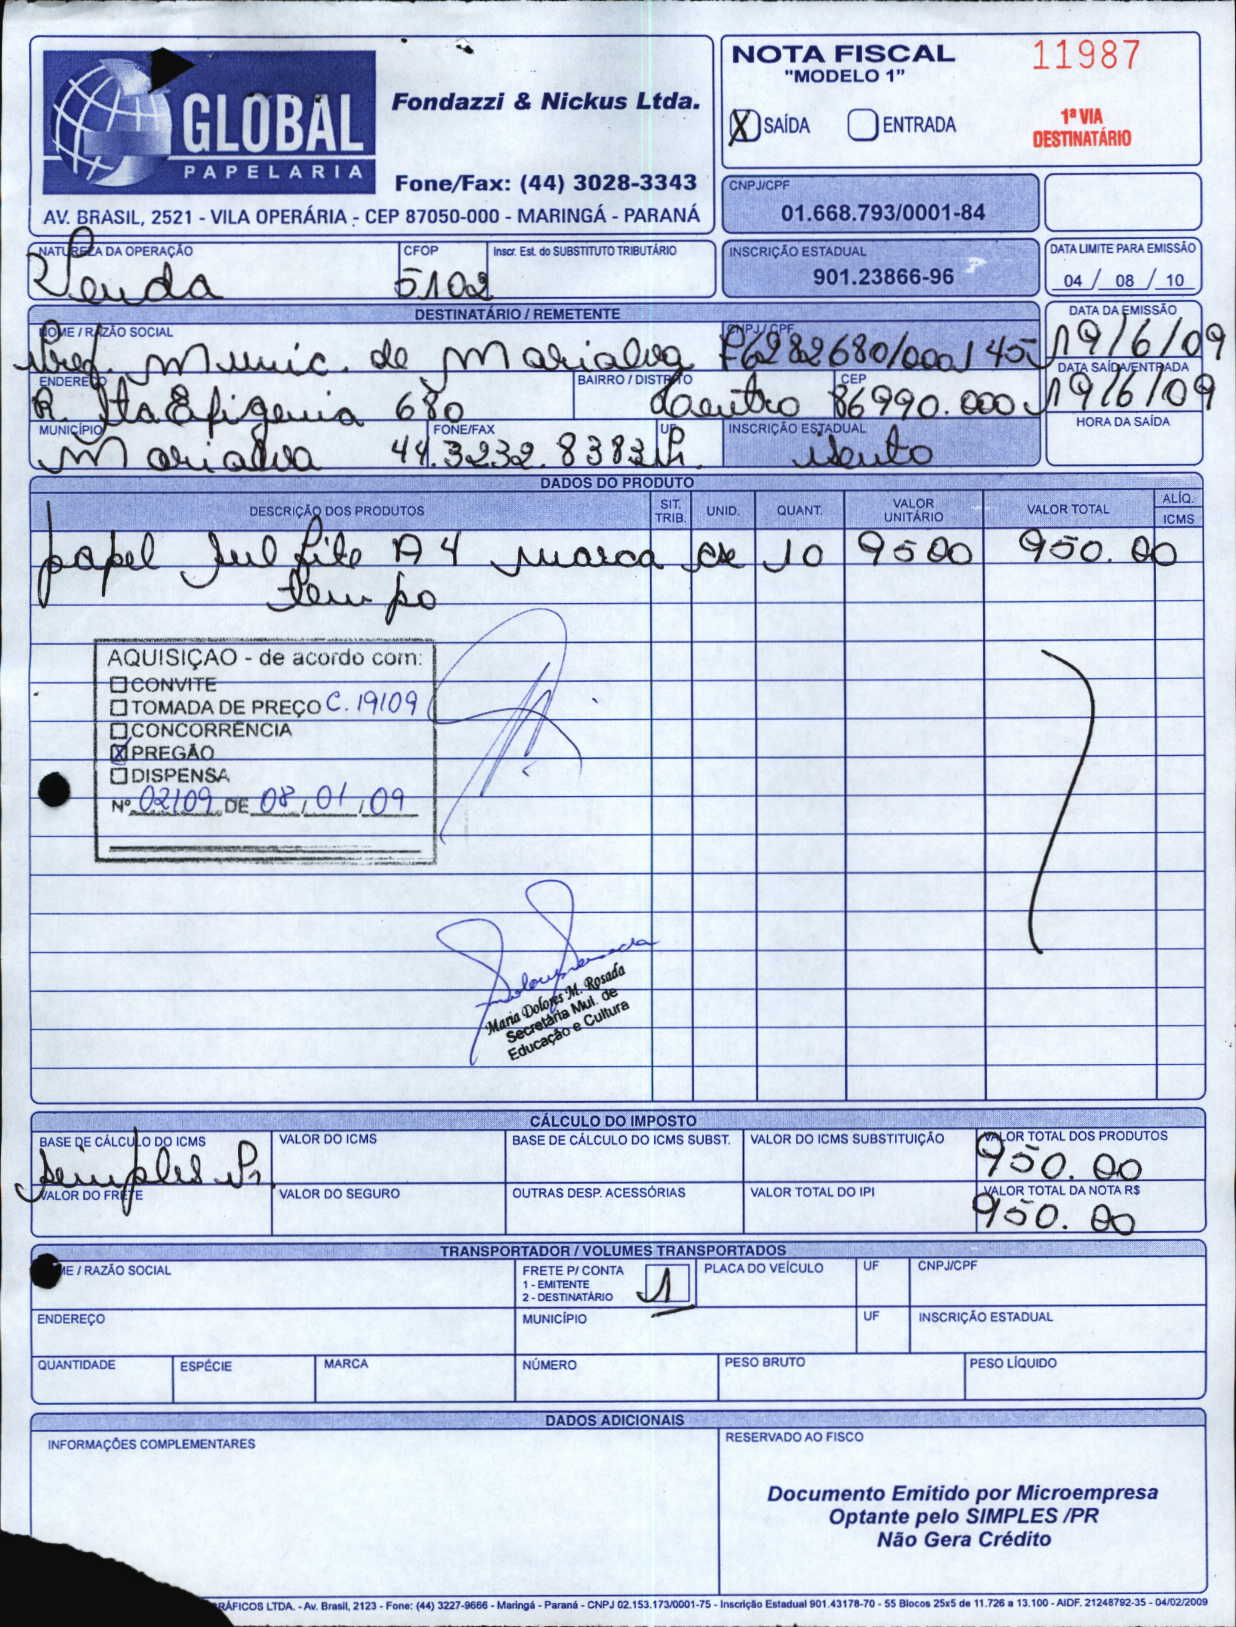 GLOBAL
PAPELARIA
Fondazzi & Nickus Ltda.
Fone/Fax: (44) 3028-3343
AV. BRASIL, 2521 - VILA OPERÁRIA - CEP 87050-000 - MARINGÁ - PARANÁ
NOTA FISCAL
"MODELO 1"
11987
X SAÍDA ENTRADA
1ª VIA
DESTINATÁRIO
CNPJ/CPF
01.668.793/0001-84
NATUREZA DA OPERAÇÃO
Venda
CFOP
5102
Inscr. Est. do SUBSTITUTO TRIBUTÁRIO
INSCRIÇÃO ESTADUAL
901.23866-96
DATA LIMITE PARA EMISSÃO
04 / 08 / 10
DESTINATÁRIO / REMETENTE
NOME / RAZÃO SOCIAL
Pref. Munic. de Marialva
CNPJ / CPF
76282680/0001 45
DATA DA EMISSÃO
19/6/09
ENDEREÇO
R. Sta Efigenia 680
BAIRRO / DISTRITO
Centro
CEP
86990.000
DATA SAÍDA/ENTRADA
19/6/09
MUNICÍPIO
Marialva
FONE/FAX
44.3232.8383
UF
Pr.
INSCRIÇÃO ESTADUAL
isento
HORA DA SAÍDA
DADOS DO PRODUTO
DESCRIÇÃO DOS PRODUTOS SIT. TRIB. UNID. QUANT. VALOR UNITÁRIO VALOR TOTAL ALÍQ. ICMS
papel sulfite A4 marca cx 10 9500 950.00
tempo
AQUISIÇAO - de acordo com:
CONVITE
TOMADA DE PREÇO C. 19/09
CONCORRÊNCIA
X PREGÃO
DISPENSA
Nº 02/09 DE 08/01/09
Maria Dolores M. Rosada
Secretária Mul. de
Educação e Cultura
CÁLCULO DO IMPOSTO
BASE DE CÁLCULO DO ICMS
simples Pr.
VALOR DO ICMS
BASE DE CÁLCULO DO ICMS SUBST.
VALOR DO ICMS SUBSTITUIÇÃO
VALOR TOTAL DOS PRODUTOS
950.00
VALOR DO FRETE
VALOR DO SEGURO
OUTRAS DESP. ACESSÓRIAS
VALOR TOTAL DO IPI
VALOR TOTAL DA NOTA R$
950.00
TRANSPORTADOR / VOLUMES TRANSPORTADOS
ME / RAZÃO SOCIAL
FRETE P/ CONTA
1 - EMITENTE
2 - DESTINATÁRIO
1
PLACA DO VEÍCULO
UF
CNPJ/CPF
ENDEREÇO
MUNICÍPIO
UF
INSCRIÇÃO ESTADUAL
QUANTIDADE
ESPÉCIE
MARCA
NÚMERO
PESO BRUTO
PESO LÍQUIDO
DADOS ADICIONAIS
INFORMAÇÕES COMPLEMENTARES
RESERVADO AO FISCO
Documento Emitido por Microempresa
Optante pelo SIMPLES /PR
Não Gera Crédito
RÁFICOS LTDA. - Av. Brasil, 2123 - Fone: (44) 3227-9666 - Maringá - Paraná - CNPJ 02.153.173/0001-75 - Inscrição Estadual 901.43178-70 - 55 Blocos 25x5 de 11.726 a 13.100 - AIDF. 21248792-35 - 04/02/2009